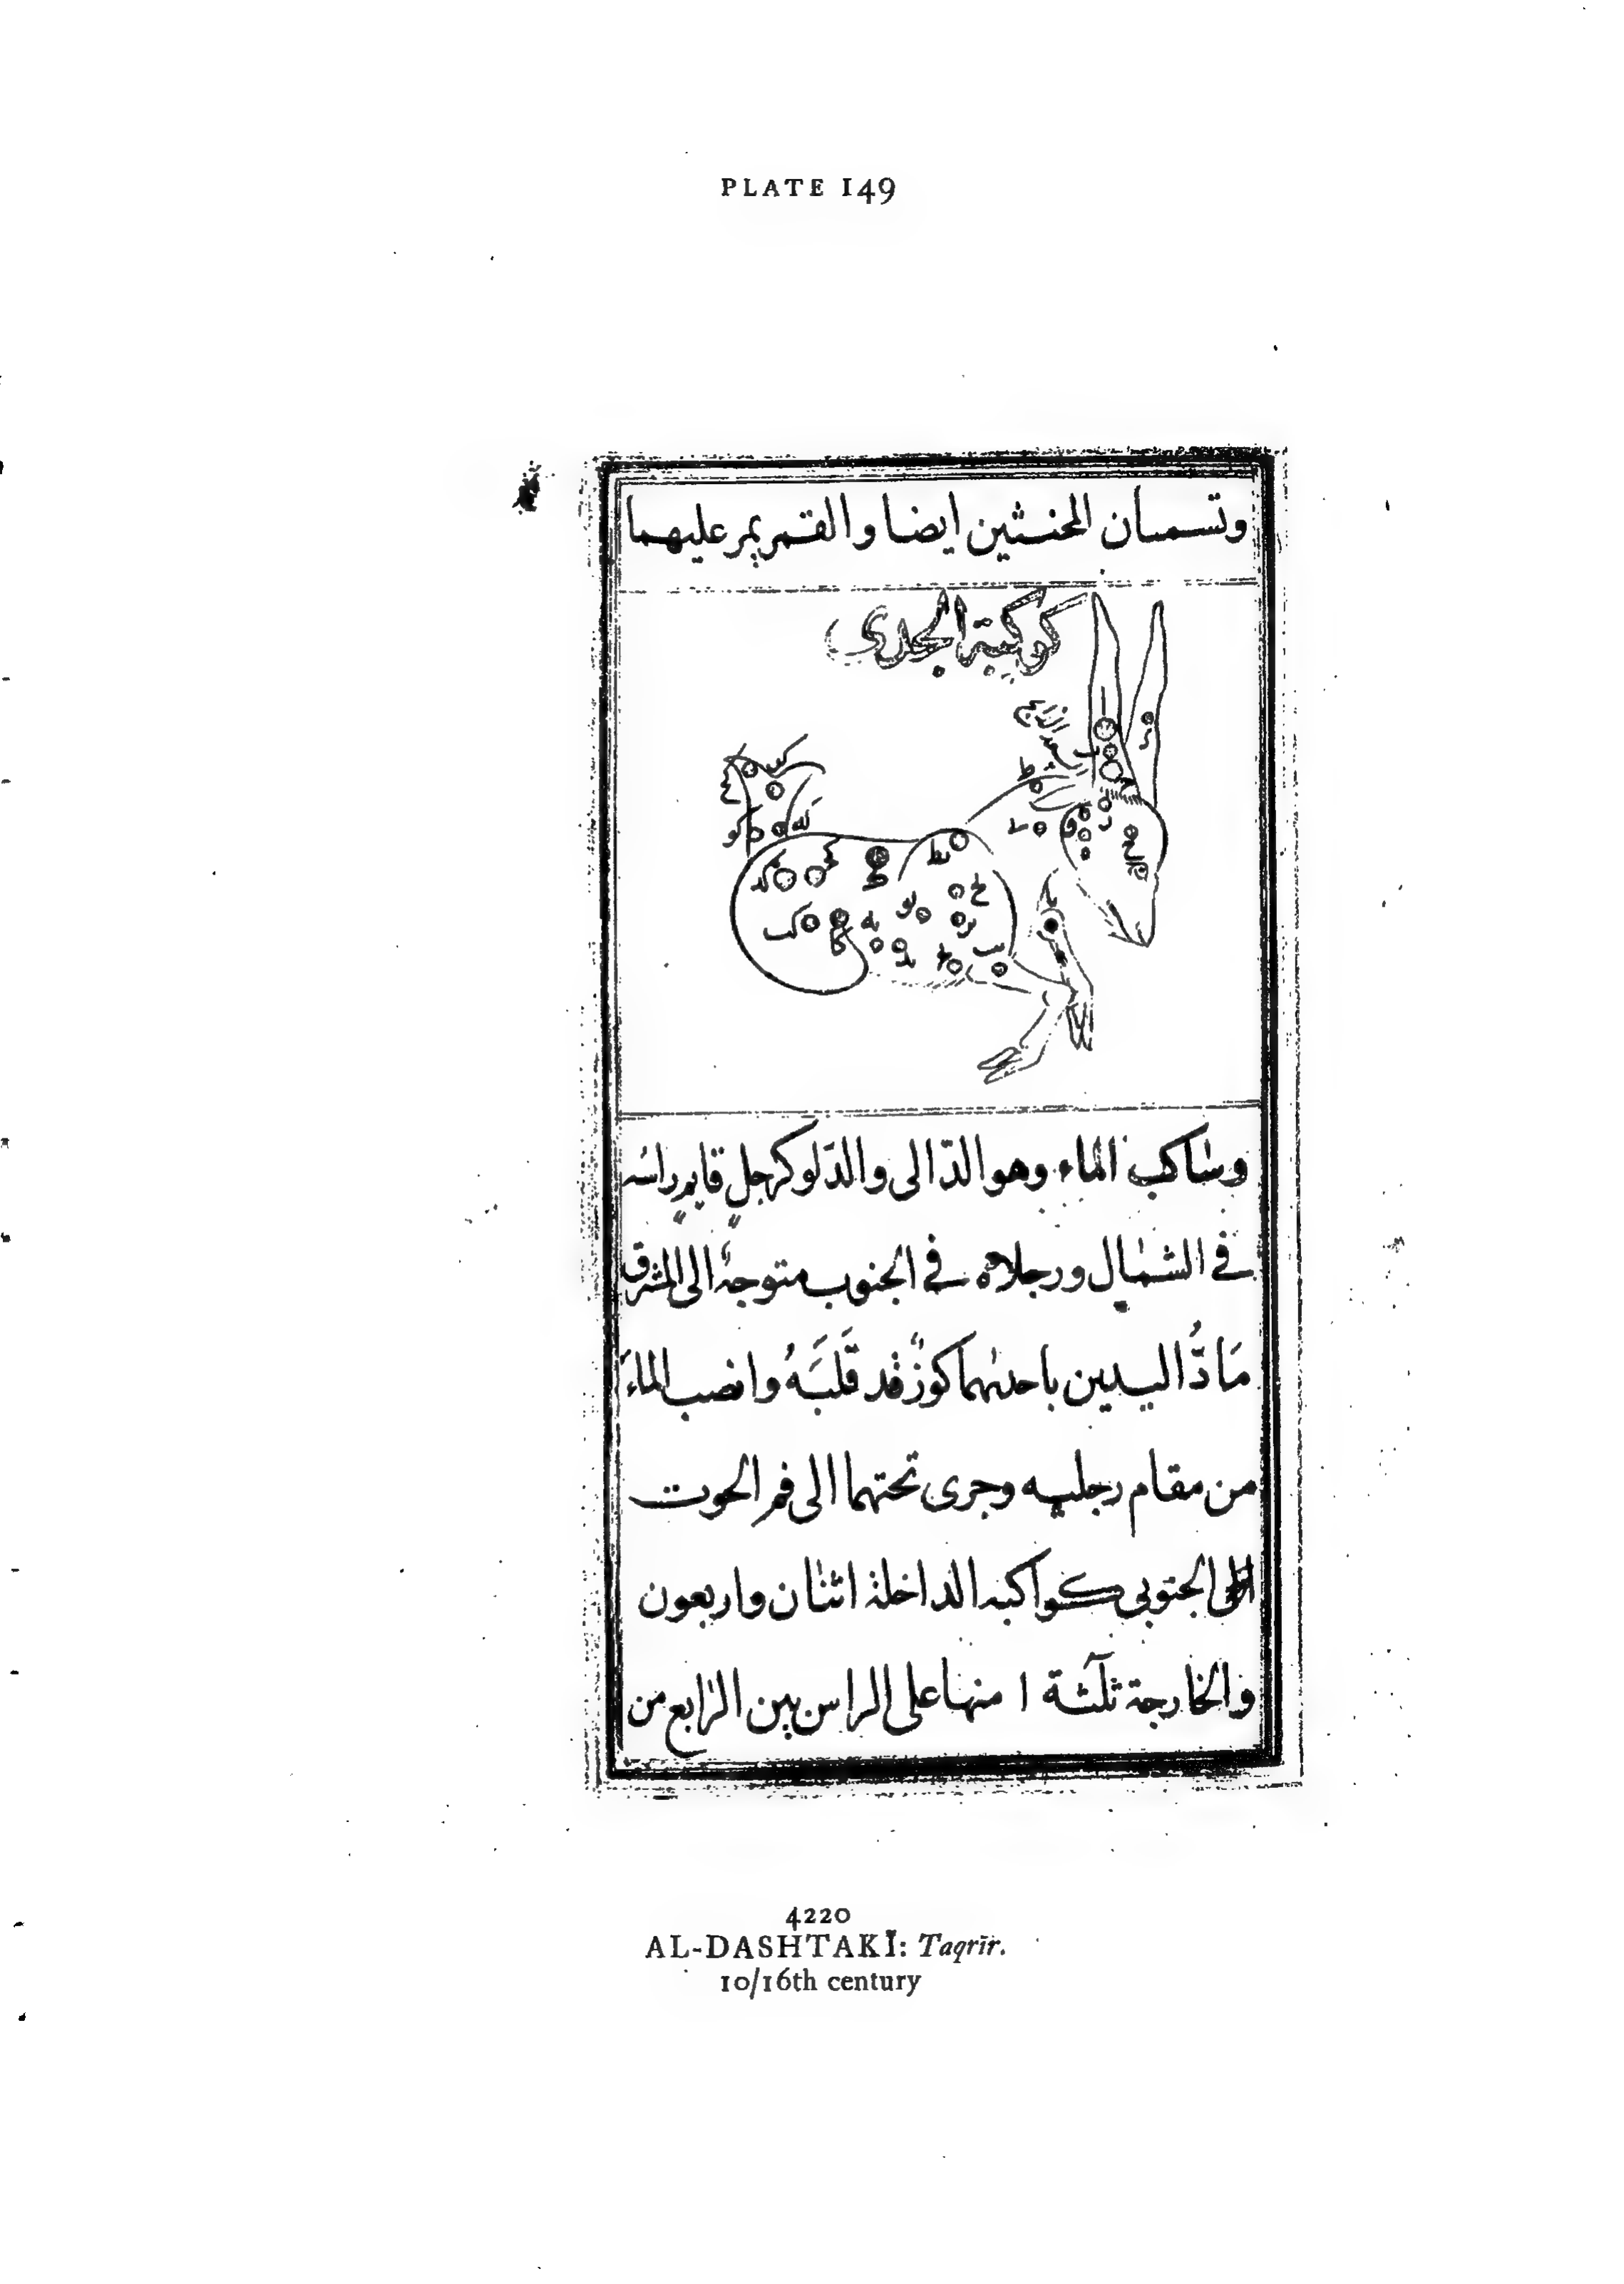 PLATE 149
وتسميان المحنثين ايضا والقمر يمر عليهما
كوكبة الجدى
سعد الذابح
وساكب الماء وهو الدّالى والدّلو كرجلٍ قايمٍ راسه
فى الشمال ورجلاه فى الجنوب متوجهٌ الى المشرق
مَادُّ اليدين باحديهما كوزٌ قد قَلَبَهُ وانصب الماءَ
من مقام رجليه وجرى تحتهما الى فم الحوت
الجنوبى كواكبه الداخلة اثنان واربعون
والخارجة ثلٰثة ا منها على الراس بين الرّابع من
4220
AL-DASHTAKĪ: Taqrīr.
10/16th century